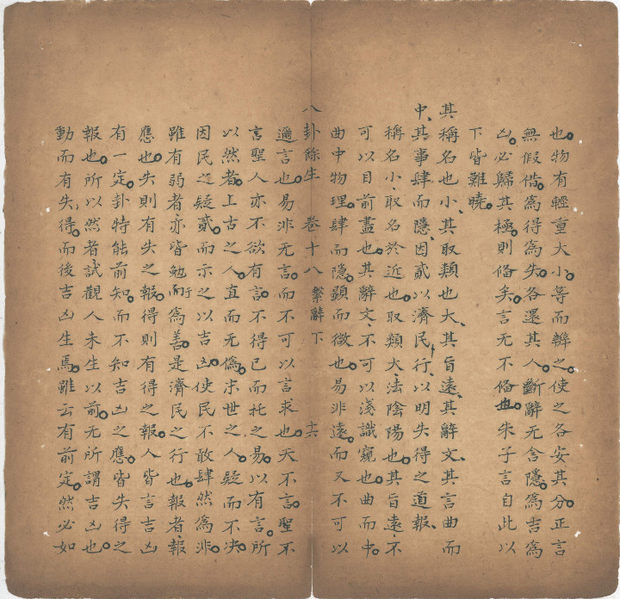 也。物有輕重大小。等而辨之。使之各安其分。正言
無假借。為得為失。各還其人。斷辭无含隱。為吉為
凶。必歸其極。則俻矣。言无不俻也。朱子言自此以
下皆難曉。
其稱名也小、其取類也大、其旨遠、其辭文、其言曲而
中、其事肆而隱、因貳以濟民行、以明失得之道報、
稱名小、取名於近也。取類大、法陰陽也。其旨遠、不
可以目前盡也。其辭文、不可以淺識窺也。曲而中。
曲中物理。肆而隱。顯而微也。易非遠。而又不可以
八卦餘生 卷十八 繫辭下 十六
邇言也。易非无言。而不可以言求也。天不言。聖不
言。聖人亦不欲有言。不得已而托之易。以有言。所
以然者。上古之人。直而无偽。末世之人。疑而不决。
因民之疑貳。而示之以吉凶。使民不敢肆然為非。
雖有弱者、亦皆勉而行為善。是濟民之行也。報者、報
應也。失則有失之報。得則有得之報。人皆言吉凶
有一定。卦特能前知。而不知吉凶之應。皆失得之
報也。所以然者、試觀人未生以前。无所謂吉凶也。
動而有失得。而後吉凶生焉。雖云有前定。然必如